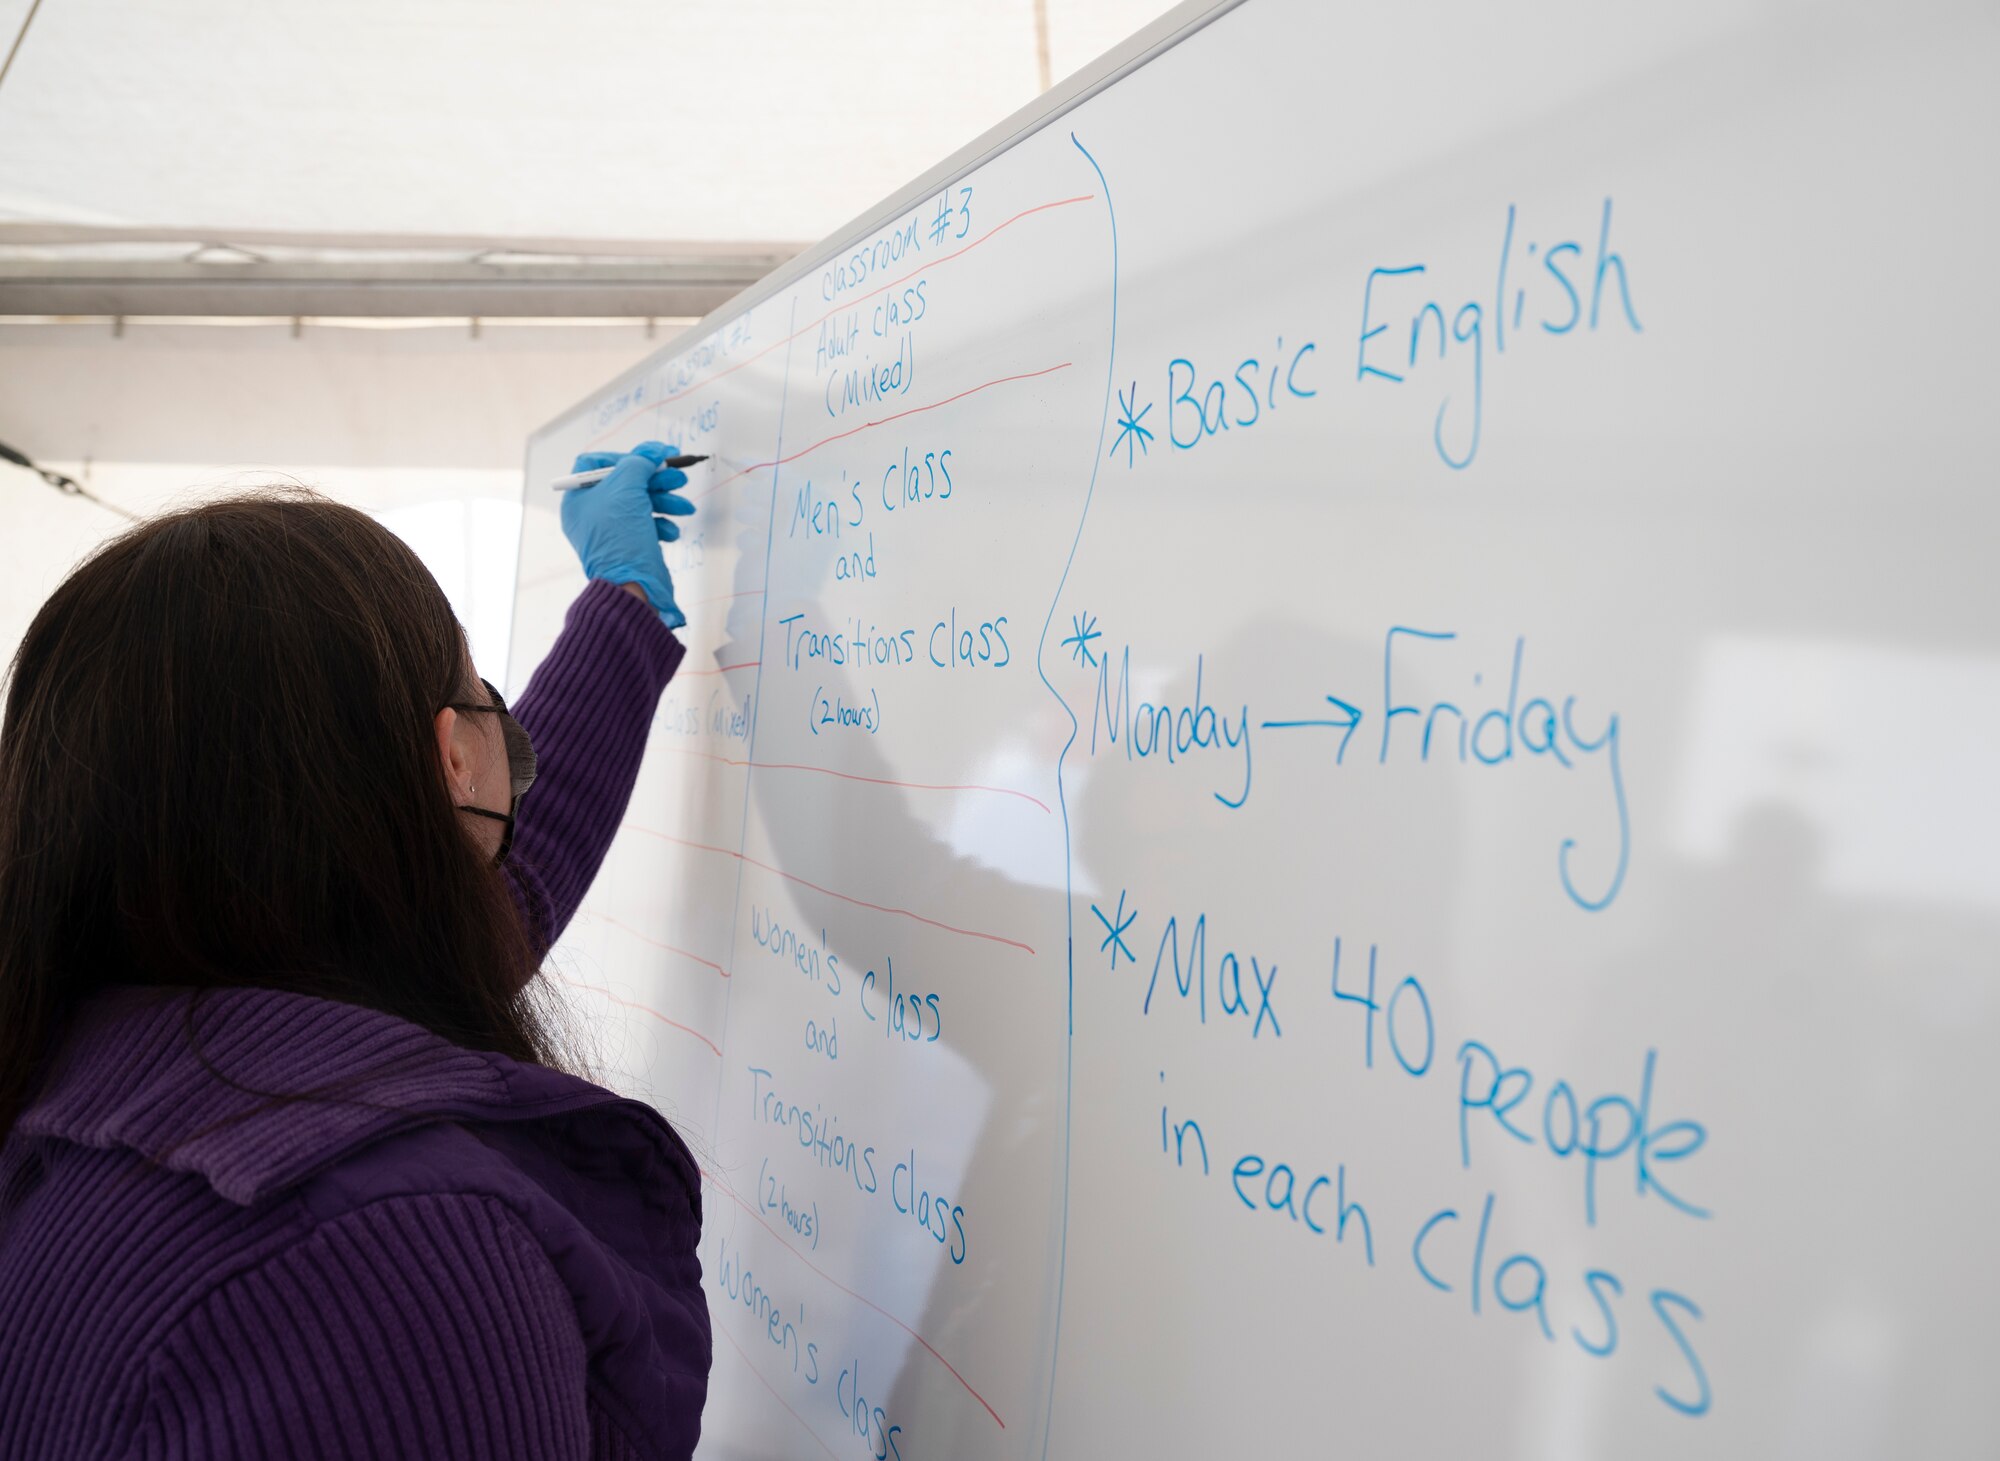 Classroom #2
class
class
Class (Mixed)
Classroom #3
Adult class
(Mixed)
Men's class
and
Transitions class
(2 hours)
Women's class
and
Transitions class
(2 hours)
Women's class
*Basic English
*Monday → Friday
*Max 40 people
in each class